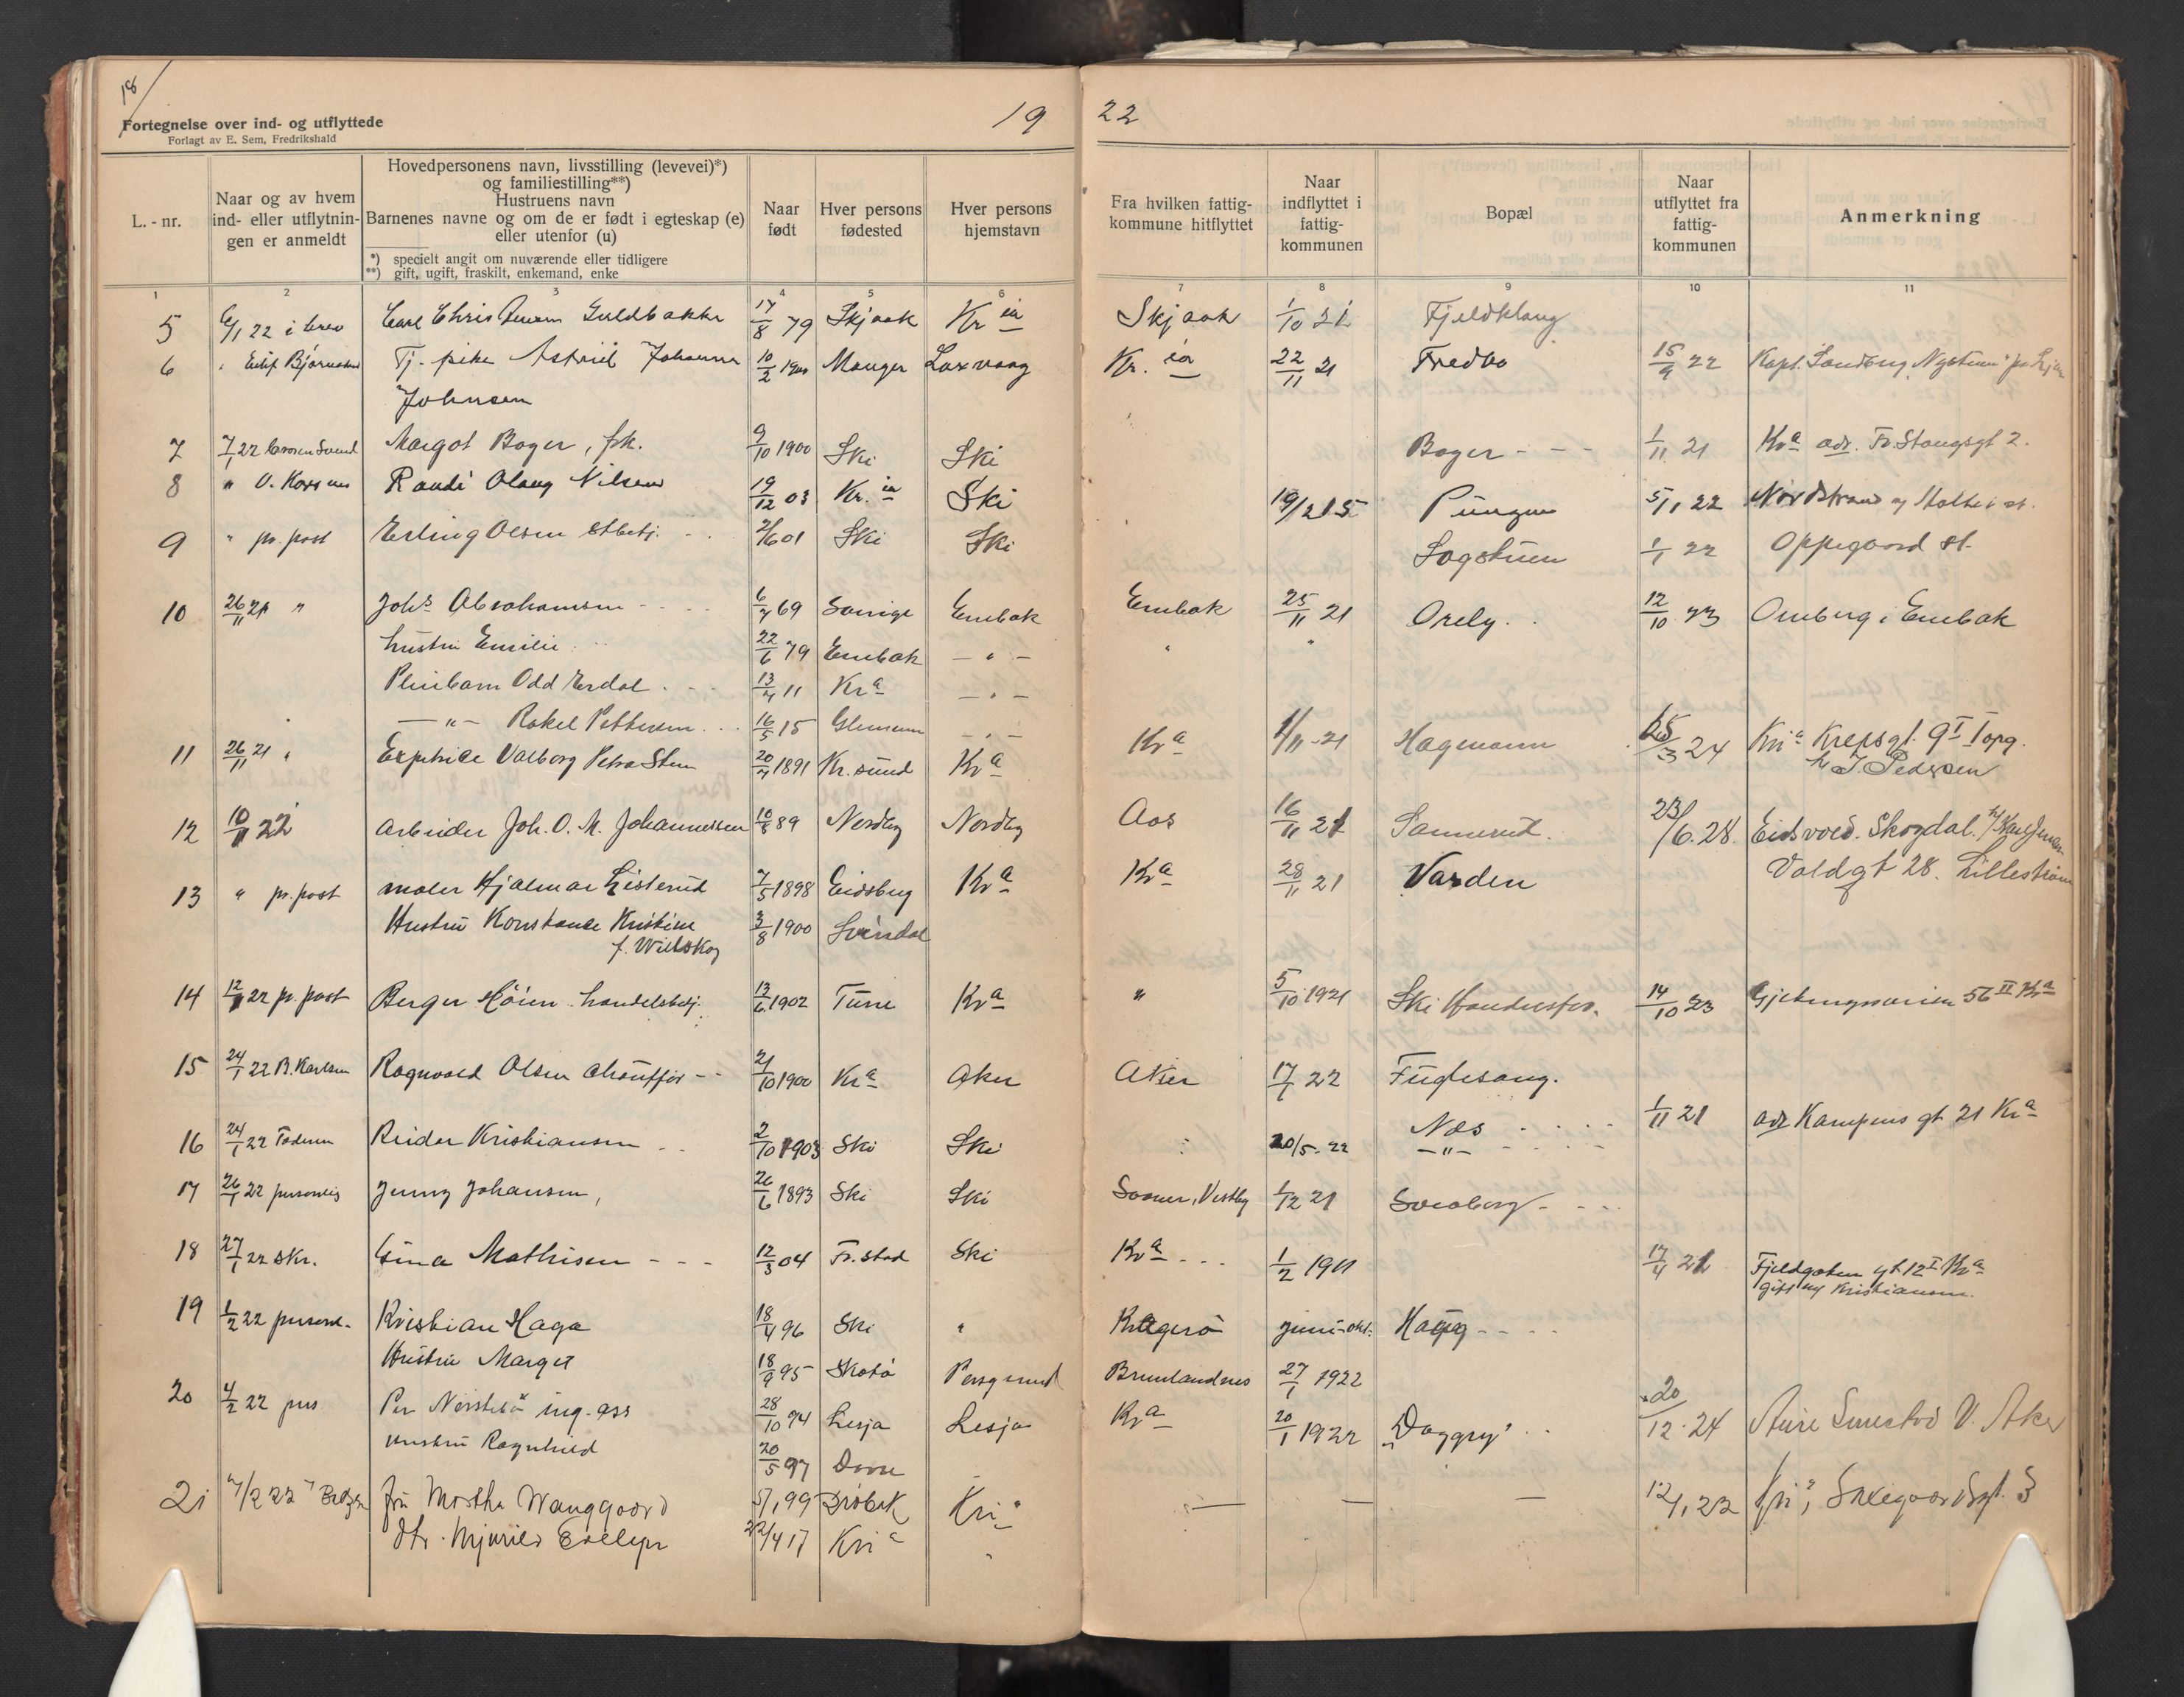 18/
Fortegnelse over ind- og utflyttede
Forlagt av E. Sem, Fredrikshald
19 22
L.-nr.
Naar og av hvem ind- eller utflytningen er anmeldt
Hovedpersonens navn, livsstilling (levevei)*)
og familiestilling**)
Hustruens navn
Barnenes navne og om de er født i egteskap (e)
eller utenfor (u)
*) specielt angit om nuværende eller tidligere
**) gift, ugift, fraskilt, enkemand, enke
Naar født
Hver persons fødested
Hver persons hjemstavn
Fra hvilken fattigkommune hitflyttet
Naar indflyttet i fattigkommunen
Bopæl
Naar utflyttet fra fattigkommunen
Anmerkning
1 2 3 4 5 6 7 8 9 10 11
5 6/1 22 i brev Carl Chris Guldbakke 17/8 79 Skjaak Kr ia Skjaak 1/10 21 Fjeldklang
6 " Bjørnstad Tj. pike Astrid Johanna 10/2 1900 Manger Laxvaag Kr. ia 22/11 21 Fredbo 15/9 22 Kapt. Sandberg
Johnsen
7 7/1 22 Margot Bøger, frk. 9/10 1900 Ski Ski Bøger - - - 1/11 21 Kra adr. Fr. Stangsgt 2.
8 " O. Randi Olaug Nilsen 19/12 03 Kr. ia Ski 19/2 15 Pungen 5/1 22 Nordstrand
9 " pr. post Erling Olsen stbetj. 2/6 01 Ski Ski Sagstuen 1/1 22 Oppegaard st.
10 26/11 21 " Johs Abrahamsen 6/7 69 Sverige Enebak Enebak 25/11 21 Orely 12/10 23 Omberg i Enebak
hustru Emilie 22/6 79 Enebak - " - " "
Pleiebarn Odd Erdal 13/4 11 Kra - " -
- " - Rakel Pettersen 16/5 15 Glemmen - " -
11 26/11 21 " Exptrice Valborg Petra Steen 20/4 1891 Kr.sund Kra Kra 1/11 21 Hagmann 25/3 24 Kria Krepsgt. 9 I Iopg.
h/ J. Pedersen
12 10/1 22 Arbeider Joh. O. M. Johannessen 10/8 89 Nordby Nordby Aas 16/11 21 Sannerud. 23/6. 28. Eidsvold. Skogdal. h/ Karl Jensen
Voldgt 28. Lillestrøm
13 " pr. post maler Hjalmar Listerud 7/5 1898 Eidsberg Kra Kra 28/11 21 Varden
Hustru Konstanse Kristine 3/8 1900 Svinndal
f. Willskog
14 12/1 22 pr. post Berger Höien handelsbetj. 13/6 1902 Tune Kra " 5/10 1921 Ski Handelsfor. 14/10 23 56 II Kra
15 24/1 22 B. Karlsen Ragnvald Olsen chauffør 21/10 1900 Kra Aker Aker 17/1 22 Fuglesang.
16 24/1 22 Faderen Reidar Kristiansen 2/10 1903 Ski Ski Næs 1/11 21 adr Kampens gt 21 Kra
20/5. 22 - " -
17 26/1 22 personlig Jenny Johansen, 26/6 1893 Ski Ski Vestby 1/12 21 Solberg
18 27/1 22 skr. Gina Mathisen 12/3 04 Fr.stad Ski Kra 1/2 1911 17/4 21 Fjeldgaten gt 12 I Kra
gift m/ Kristiansen.
19 1/2 22 personl. Kristian Haga 18/4 96 Ski " Kragerö juni-okt. Haga
Hustru Marget 18/9 95 Skåtö Porsgrund Brunlandnes 27/1 1922
20 4/2 22 pers Per Norstebö ing. ass 28/10 94 Lesja Lesja Kra 20/1 1922 „Daggry" 20/12. 24 V. Aker
Hustru Ragnhild 20/5 97 Dovre
21 7/2 22 fru Martha Wanggaard 5/1 99 Drøbak Kria - - - 12/1 22 Kria,
dtr. 22/4 17 Kria "